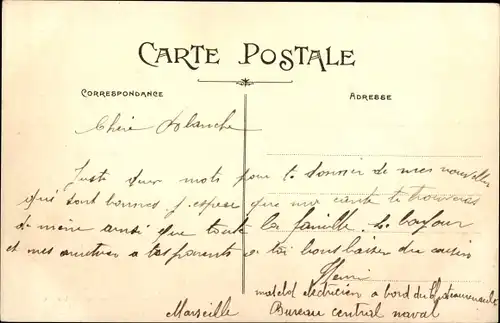 CARTE POSTALE
CORRESPONDANCE
ADRESSE
Chère Blanche
Juste quer mots pour te donner de mes nouvelles
qui sont bonnes j. espere que ma carte te trouvera
de même ainsi que toute la famille. bonjour
et mes amities a tes parents a toi bons baiser du cousin
Henri
matelot electricien a bord du
Marseille Bureau central naval